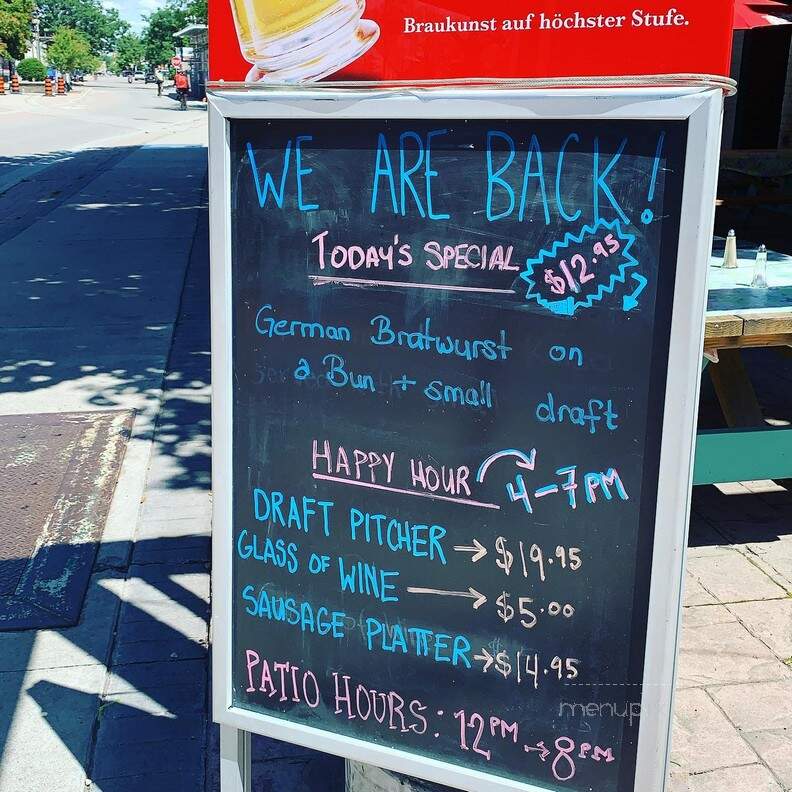 Braukunst auf höchster Stufe.
WE ARE BACK!
TODAY'S SPECIAL $12.95
German Bratwurst on
a Bun + small draft
HAPPY HOUR 4-7PM
DRAFT PITCHER → $19.95
GLASS OF WINE → $5.00
SAUSAGE PLATTER → $14.95
PATIO HOURS: 12PM → 8PM
menupi